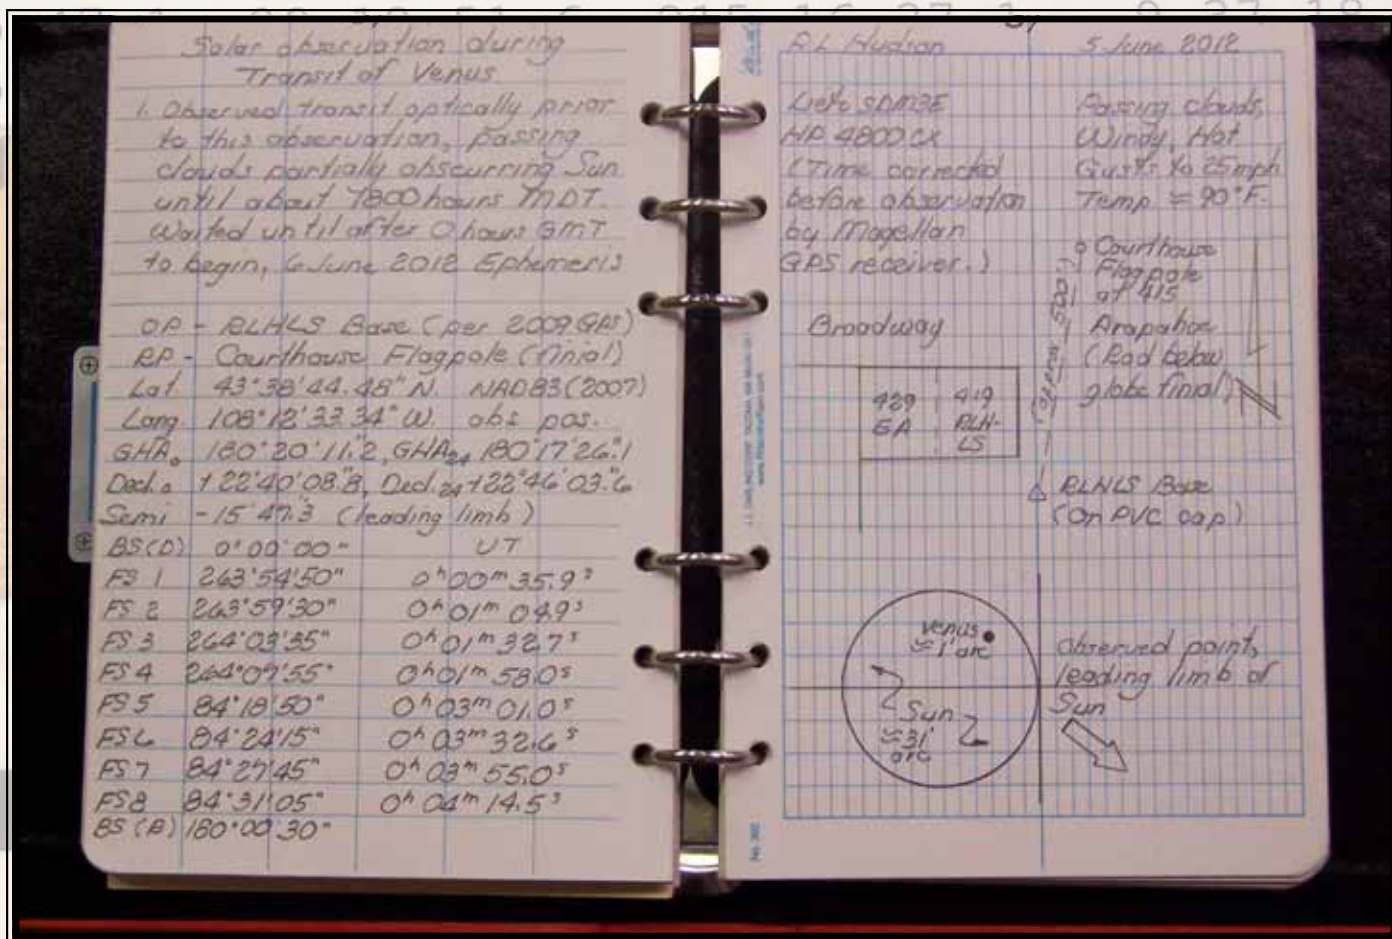 Solar observation during
Transit of Venus
1. Observed transit optically prior
to this observation, passing
clouds partially obscurring Sun
until about 1800 hours MDT.
Waited until after 0 hours GMT
to begin, 6 June 2012 Ephemeris
OP - RLHLS Base (per 2009 GPS)
RP - Courthouse Flagpole (finial)
Lat. 43°38'44.48" N. NAD83(2007)
Long. 108°12'33.34" W. obs pos.
GHA₀ 180°20'11."2, GHA₂₄ 180°17'26."1
Decl.₀ +22°40'08."8, Decl.₂₄ +22°46'03."6
Semi -15'47."3 (leading limb)
BS(D) 0°00'00" UT
FS 1 263°54'50" 0ʰ00ᵐ35.9ˢ
FS 2 263°59'30" 0ʰ01ᵐ04.9ˢ
FS 3 264°03'35" 0ʰ01ᵐ32.7ˢ
FS 4 264°07'55" 0ʰ01ᵐ58.0ˢ
FS 5 84°18'50" 0ʰ03ᵐ01.0ˢ
FS 6 84°24'15" 0ʰ03ᵐ32.6ˢ
FS 7 84°27'45" 0ʰ03ᵐ55.0ˢ
FS 8 84°31'05" 0ʰ04ᵐ14.5ˢ
BS (R) 180°00'30"
RL Hudson 5 June 2012
Lietz SDM3E
HP 4800CX
(Time corrected
before observation
by Magellan
GPS receiver.)
Passing clouds,
Windy, Hot
Gusts to 25mph
Temp ≈ 90°F.
Courthouse
Flagpole
at 415
Arapahoe
(Rod below
globe finial)
(approx. 500')
Broadway
429
GA
419
RLH-
LS
RLHLS Base
(On PVC cap)
Venus
≈1' arc
Sun
≈31'
arc
Observed point,
leading limb of
Sun
No. 302